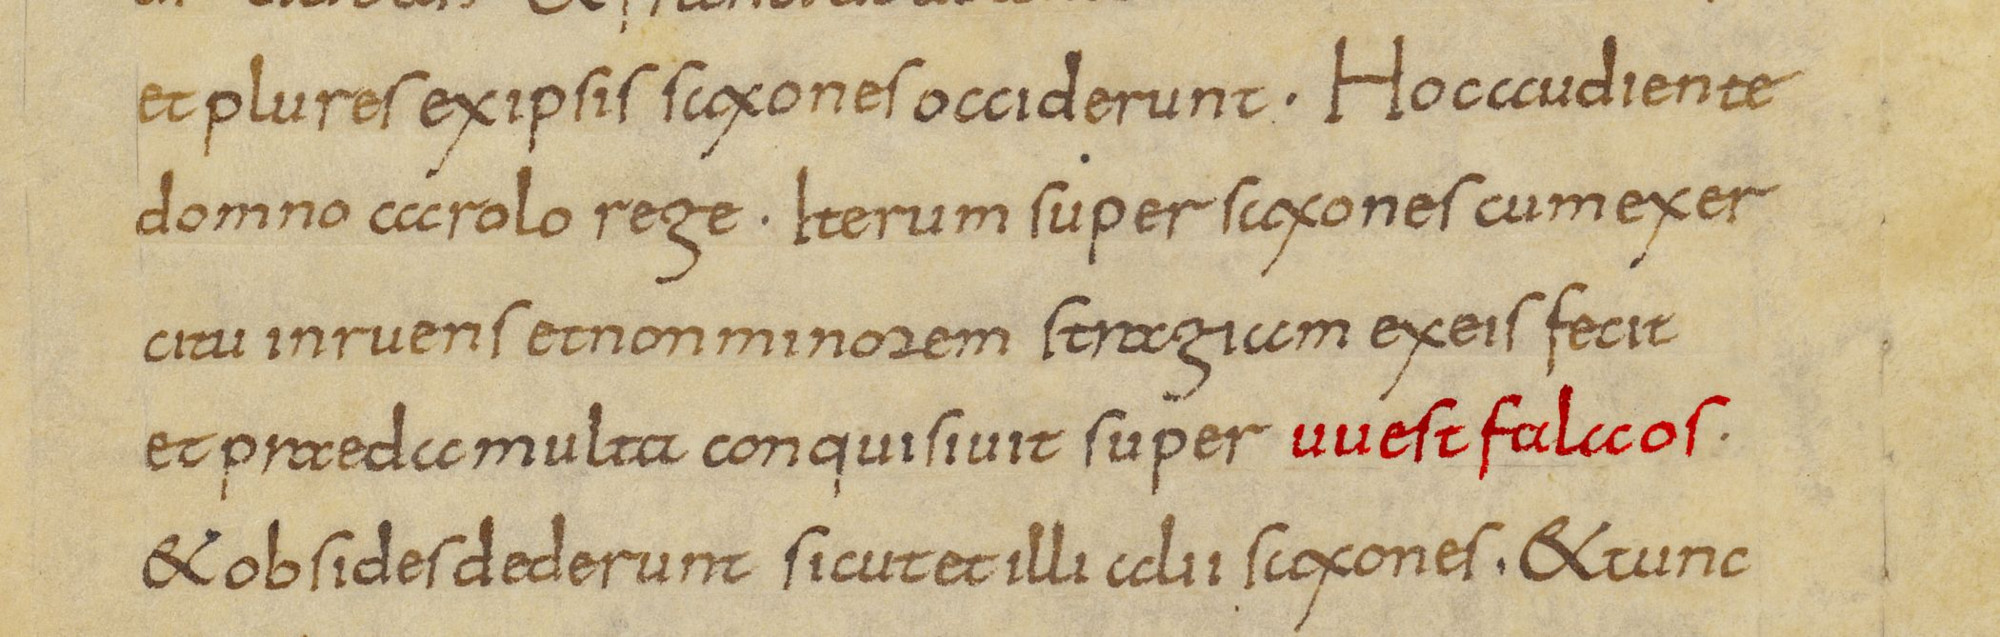 et plures ex ipsis saxones occiderunt. Hoc audiente
domno carolo rege. Iterum super saxones cum exer
citu inruens et non minorem stragiam ex eis fecit
et praeda multa conquisiuit super uuestfalaos.
& obsides dederunt sicut et illi alii saxones. & tunc